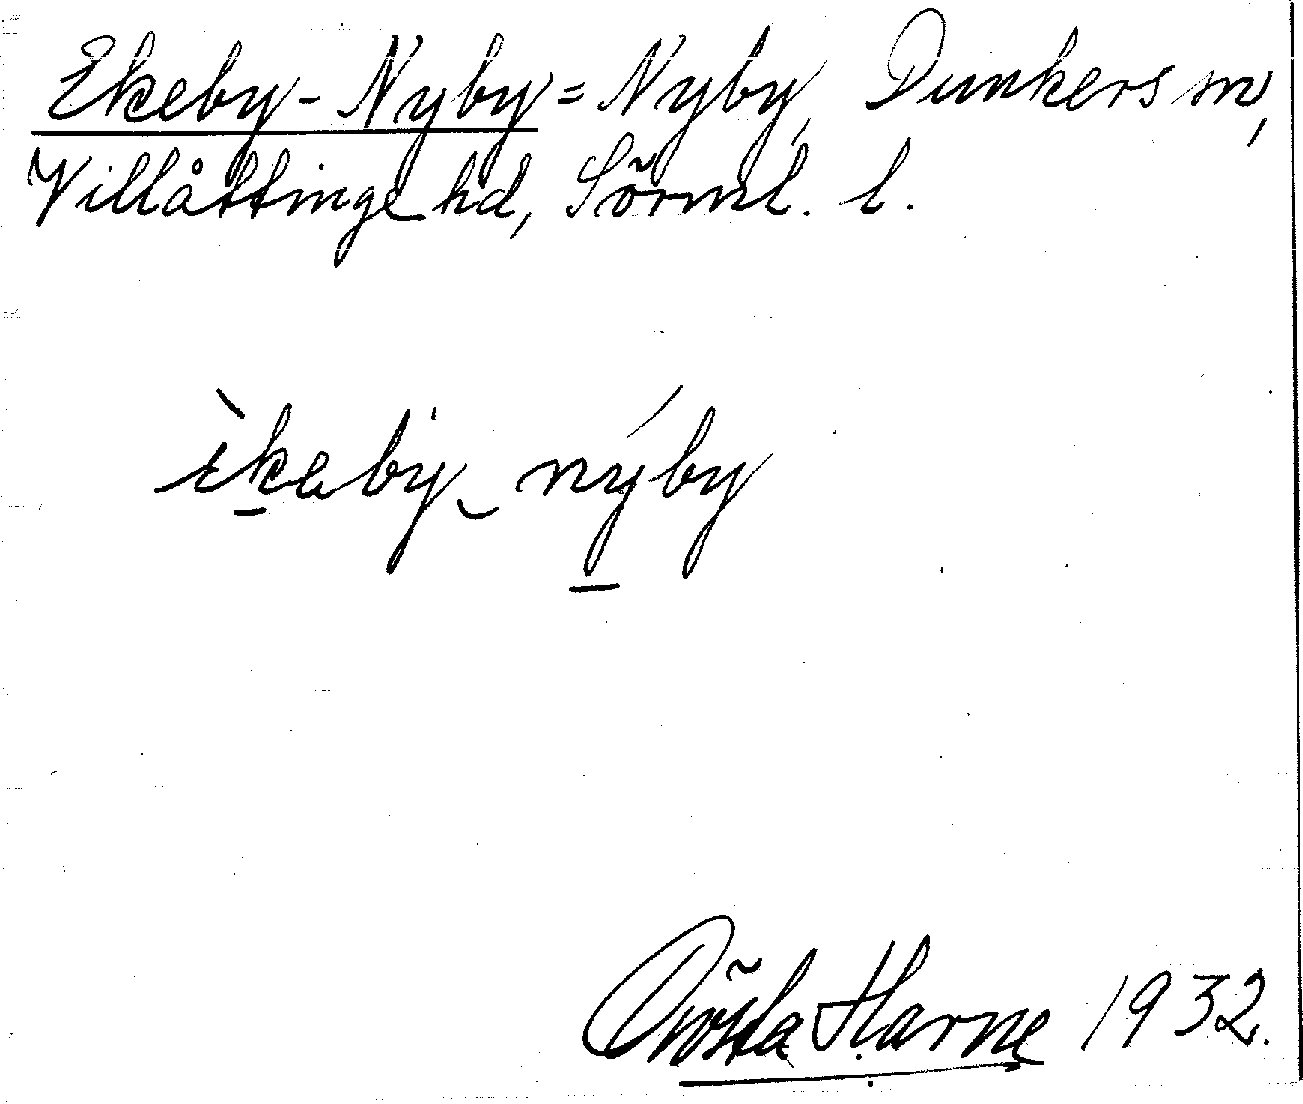 Ekeby-Nyby = Nyby, Dunkers sn,
Villåttinge hd, Sörml. l.
ìkaby nýby
Gösta Harne 1932.